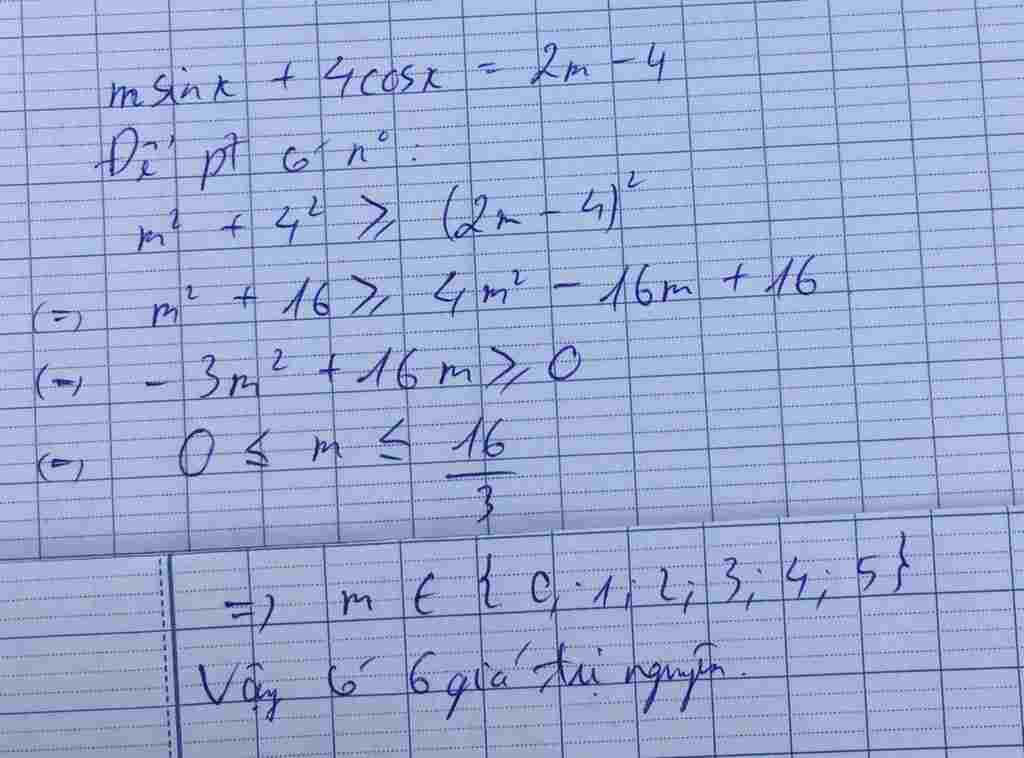 m sinx + 4cosx = 2m - 4
Để pt có n°:
m² + 4² ≥ (2m - 4)²
(=) m² + 16 ≥ 4m² - 16m + 16
(=) - 3m² + 16m ≥ 0
(=) 0 ≤ m ≤ 16/3
=) m ∈ {0; 1; 2; 3; 4; 5}
Vậy có 6 giá trị nguyên.